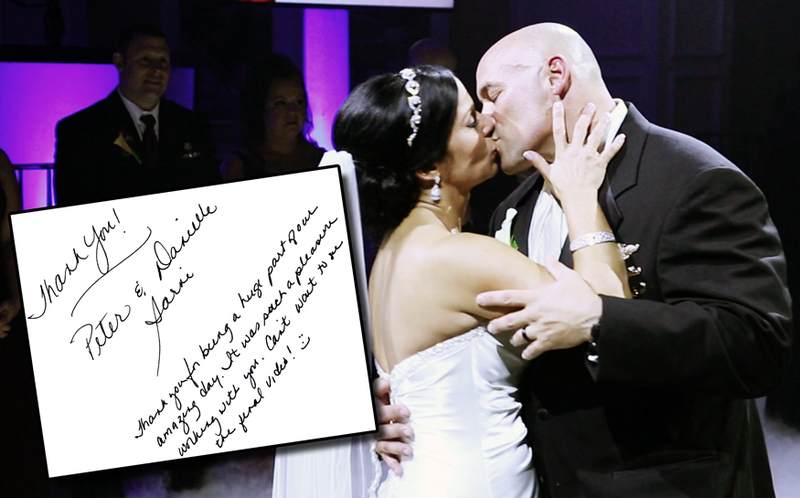 Thank You!
Peter & Danielle
Thank you for being a huge part of our
amazing day. It was such a pleasure
working with you. Can't wait to see
the final video! :)